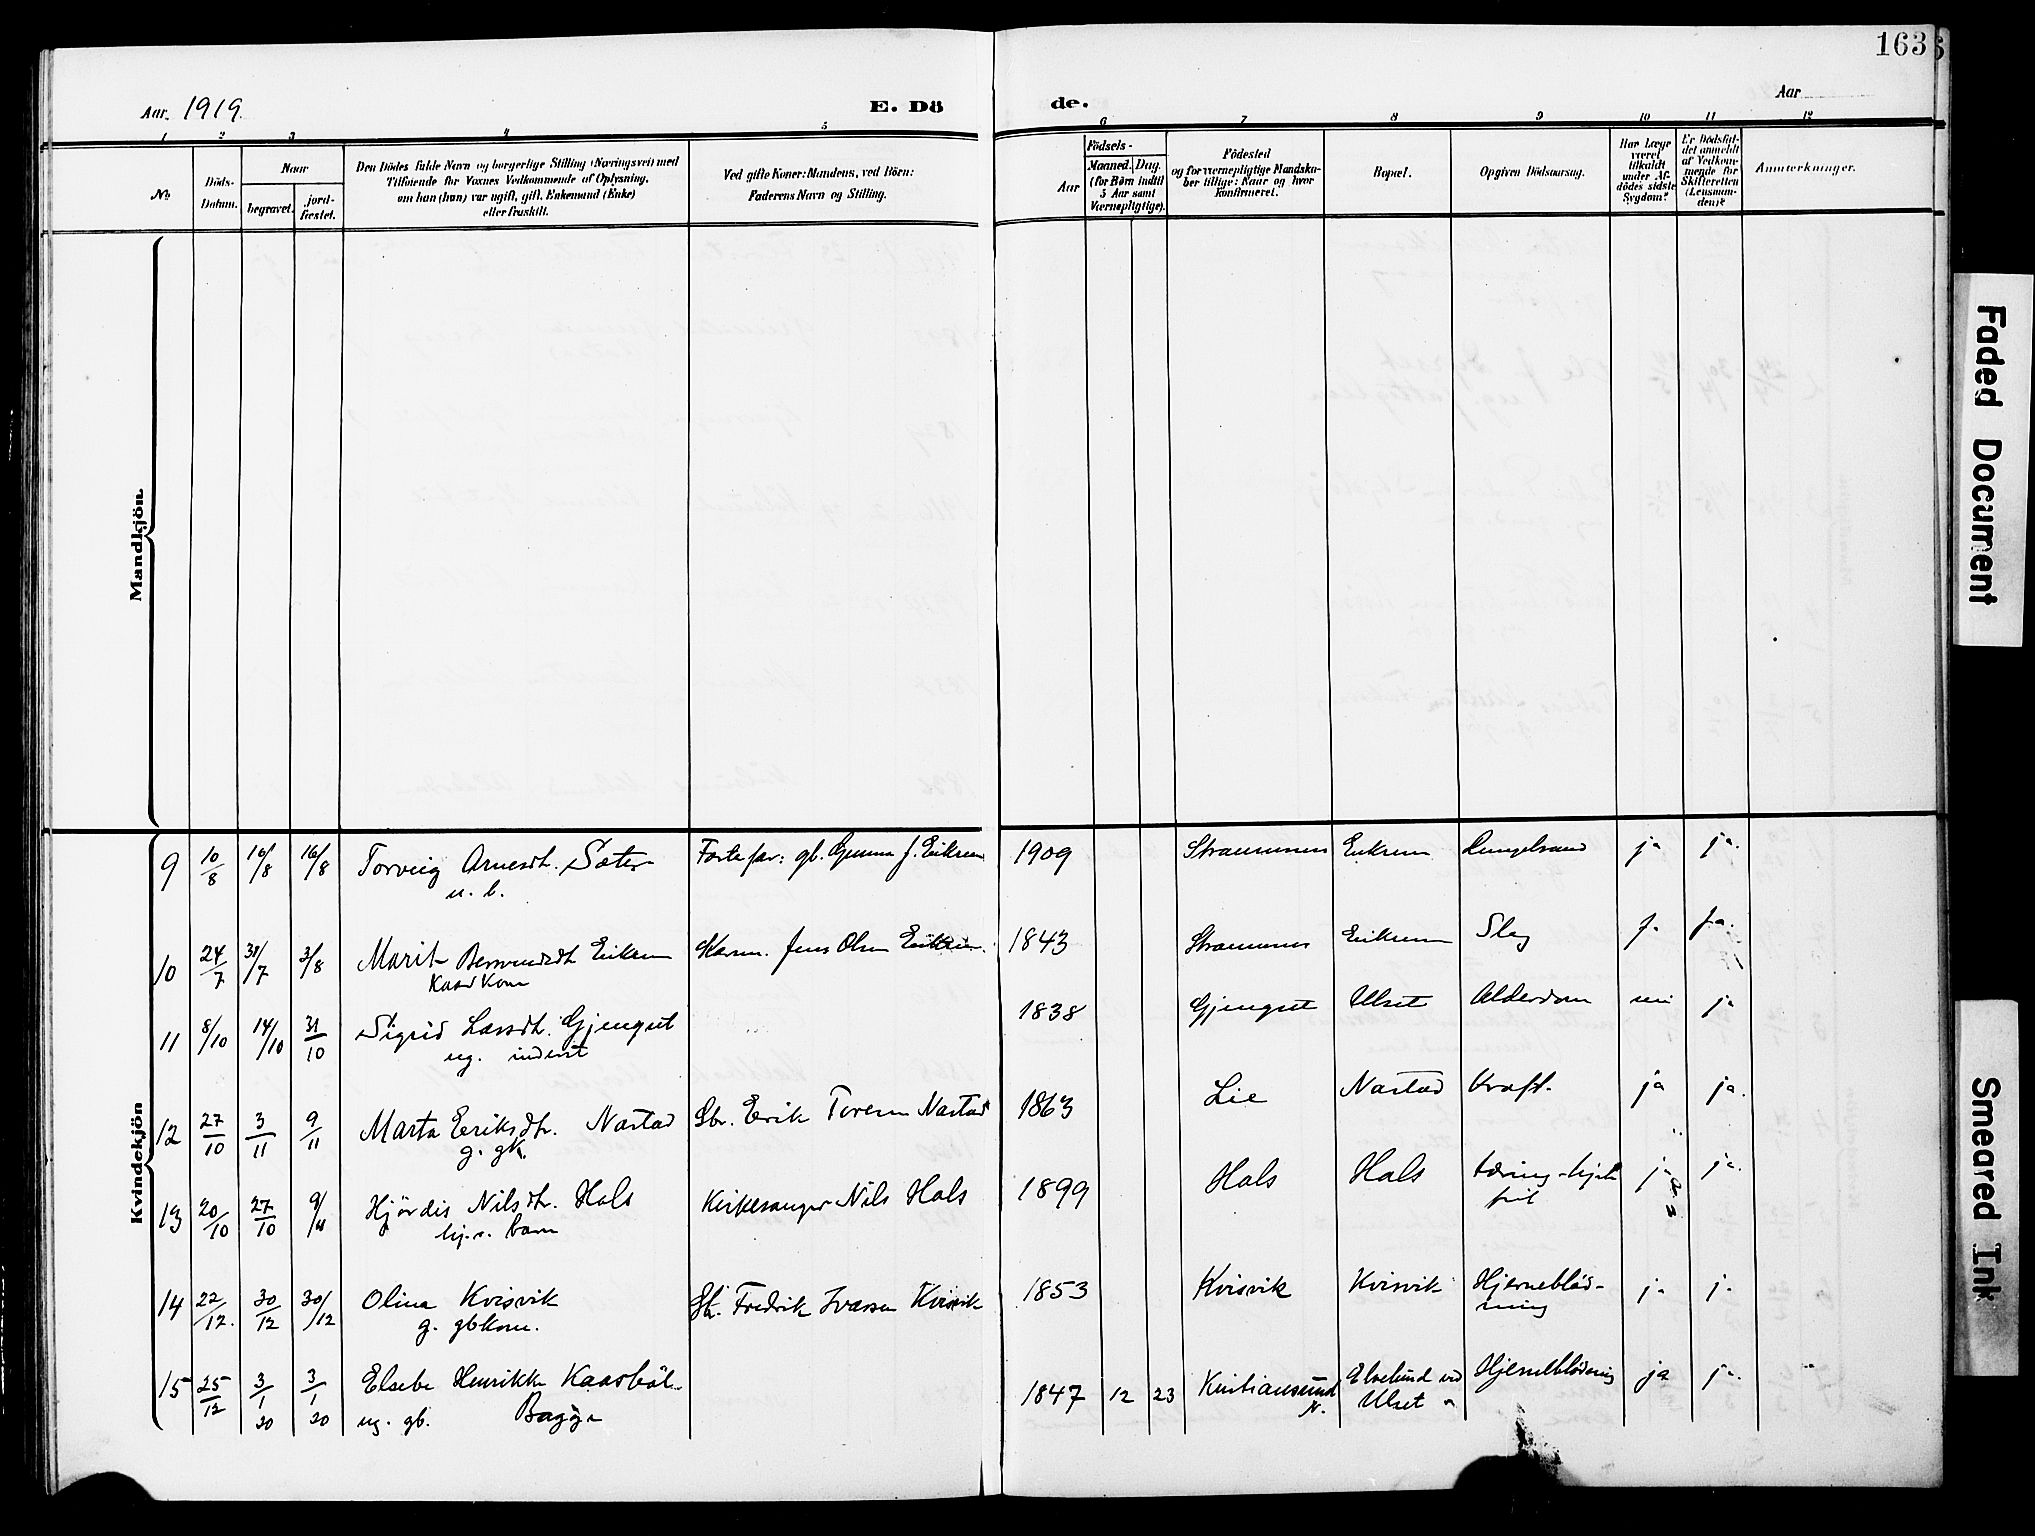 163
Aar 1919.
E. Dö de.
Aar
1 2 3 4 5 6 7 8 9 10 11 12
No
Döds-
Datum.
Naar
begravet.
jord-
fæstet.
Den Dödes fulde Navn og borgerlige Stilling (Næringsvei) med
Tilföiende for Voxnes Vedkommende af Oplysning,
om han (hun) var ugift, gift, Enkemand (Enke)
eller fraskilt.
Ved gifte Koner: Mandens, ved Börn:
Faderens Navn og Stilling.
Födsels-
Aar
Maaned.
Dag.
(for Börn indtil
5 Aar samt
Værnepligtige).
Födested
og for værnepligtige Mandska-
ber tillige: Naar og hvor
konfirmeret.
Bopæl.
Opgiven Dödsaarsag.
Har Læge
været
tilkaldt
under Af-
dödes sidste
Sygdom?
Er Dödsfal-
det anmeldt
af Vedkom-
mende for
Skifteretten
(Lensman-
den)?
Anmærkninger.
Mandkjön.
Kvindekjön
9 10/8 16/8 16/8 Torveig Arnesdt. Sæter Fosterfar: gb. Gunnar J. Eikrem 1909 Straumsnes Eikrem ja ja.
u. b.
10 24/7 30/7 3/8 Marit Eikrem Jens Olsen Eikrem 1843 Straumsnes Eikrem Slag j. ja.
Kaarkone
11 8/10 14/10 31/10 Sigrid Larsdt. Gjengset 1838 Gjengset Ulset Alderdom nei ja
ug. inderst
12 27/10 3/11 9/11 Marta Eriksdt. Nastad Gbr. Erik Toresen Nastad 1863 Lie Nastad Kræft. ja ja.
g. gk.
13 20/10 27/10 9/11 Hjördis Nilsdt. Hals Kirkesanger Nils Hals 1899 Hals Hals tæring - ja ja.
hj.v. barn
14 22/12. 30/12 30/12 Olina Kvisvik Gb. Fredrik Ivarsen Kvisvik 1853 Kvisvik Kvisvik Hjerneblöd-
ning j. j.
g. gbkone.
15 25/12 3/1 20 3/1 20 Elsebe Henrikke Kaasböl- 1847 12 23 Kristiansund
N. Elvelund ved
Ulset Hjerneblödning ja ja.
ug. gb. Bagge
Faded Document
Smeared Ink